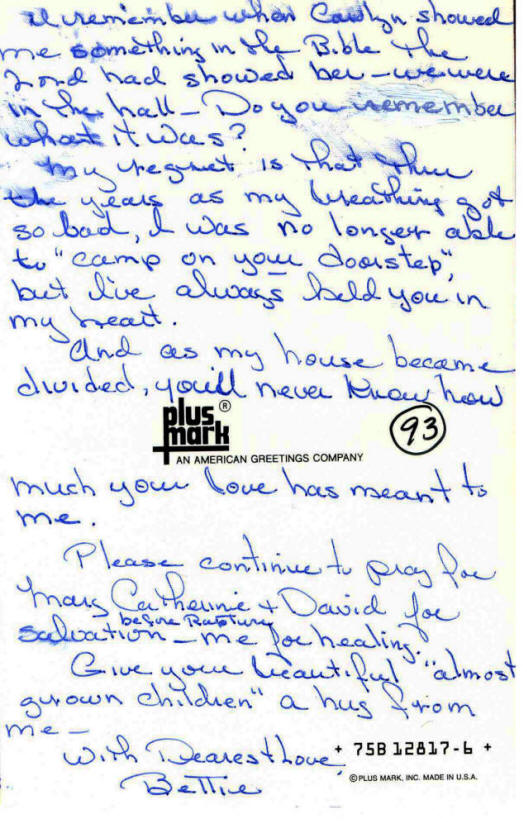 I remember when Carolyn showed
me something in the Bible the
Lord had showed her - we were
in the hall - Do you remember
what it was?
My regret is that thru
the years as my breathing got
so bad, I was no longer able
to "camp on your doorstep",
but I've always held you in
my heart.
And as my house became
divided, you'll never know how
plus mark ®
93
AN AMERICAN GREETINGS COMPANY
much your love has meant to
me.
Please continue to pray for
Mary Catherine + David for
before Rapture
salvation - me for healing.
Give your beautiful "almost
grown children" a hug from
me -
With Dearest Love,
Bettie
+ 75B 12817-6 +
© PLUS MARK, INC. MADE IN U.S.A.